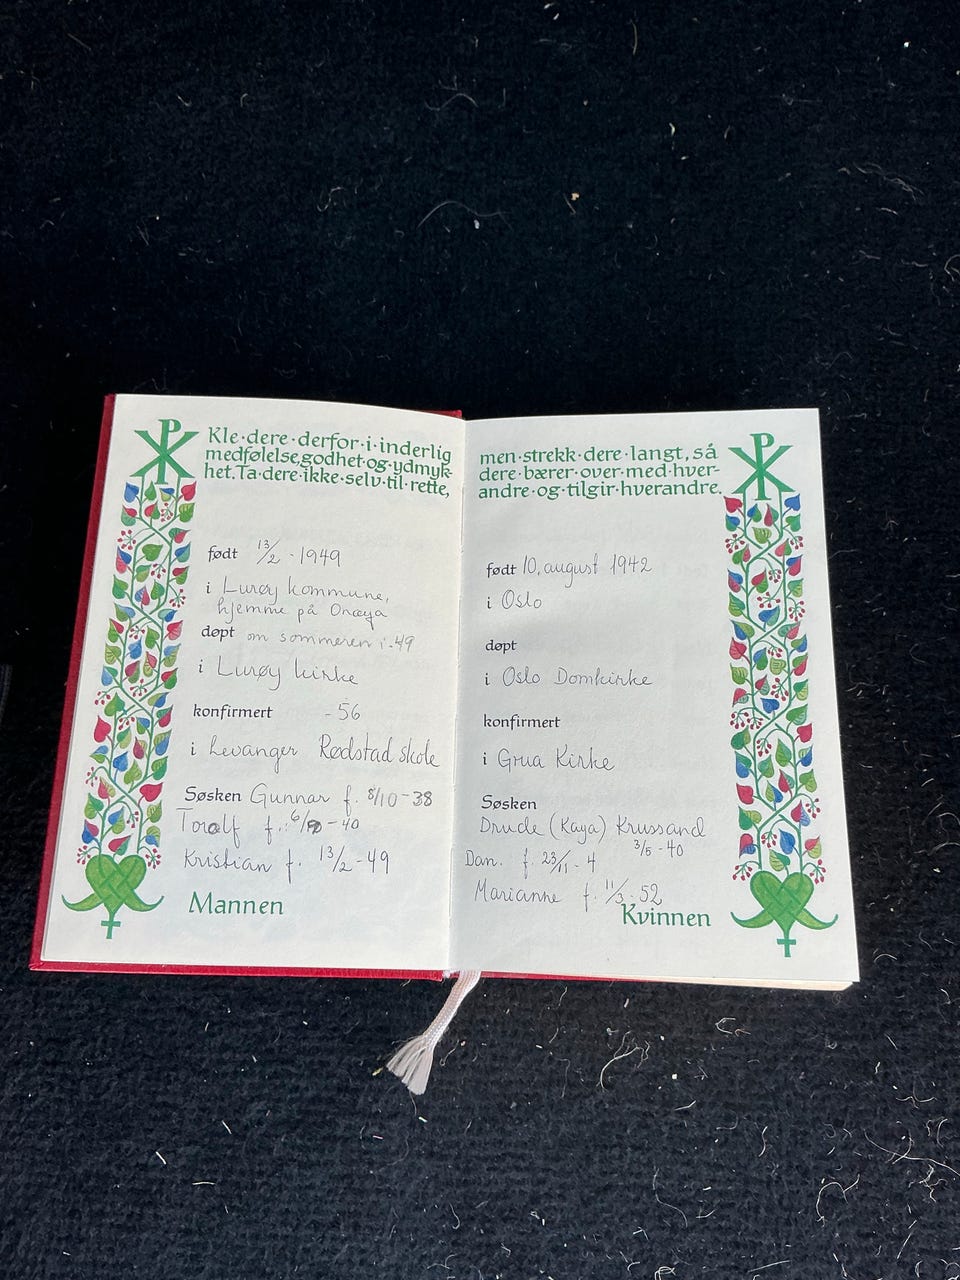 Kle·dere·derfor·i·inderlig
medfølelse,godhet·og·ydmyk-
het.Ta·dere·ikke·selv·til·rette,
født 13/2 - 1949
i Lurøy kommune,
hjemme på Onøya
døpt om sommeren i -49
i Lurøy kirke
konfirmert -56
i Levanger Rødstad skole
Søsken Gunnar f. 8/10-38
Toralf f. 6/ -40
Kristian f. 13/2-49
Mannen
men·strekk·dere·langt, så
dere·bærer·over·med·hver-
andre·og·tilgir·hverandre.
født 10, august 1942
i Oslo
døpt
i Oslo Domkirke
konfirmert
i Grua Kirke
Søsken
Drude (Kaya) Krussand
3/5-40
Dan. f. 23/11 - 4
Marianne f. 11/3-52
Kvinnen